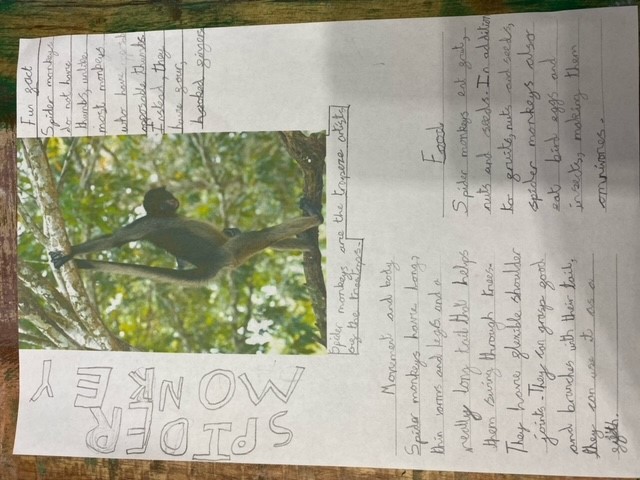 SPIDER
MONKEY
Fun fact
Spider monkeys
do not have
thumbs, unlike
most monkeys
who have
opposable thumbs
Instead they
have four,
hooked fingers
Spider monkeys are the trapeze artists
of the treetops.
Movement and body
Spider monkeys have long,
thin arms and legs and a
really long tail that helps
them swing through trees.
They have flexible shoulder
joints. They can grasp food
and branches with their tail,
they can use it as a
Food
Spider monkeys eat fruits,
nuts and seeds. In addition
to fruits, nuts and seeds,
spider monkeys also
eat bird eggs and
insects, making them
omnivores.